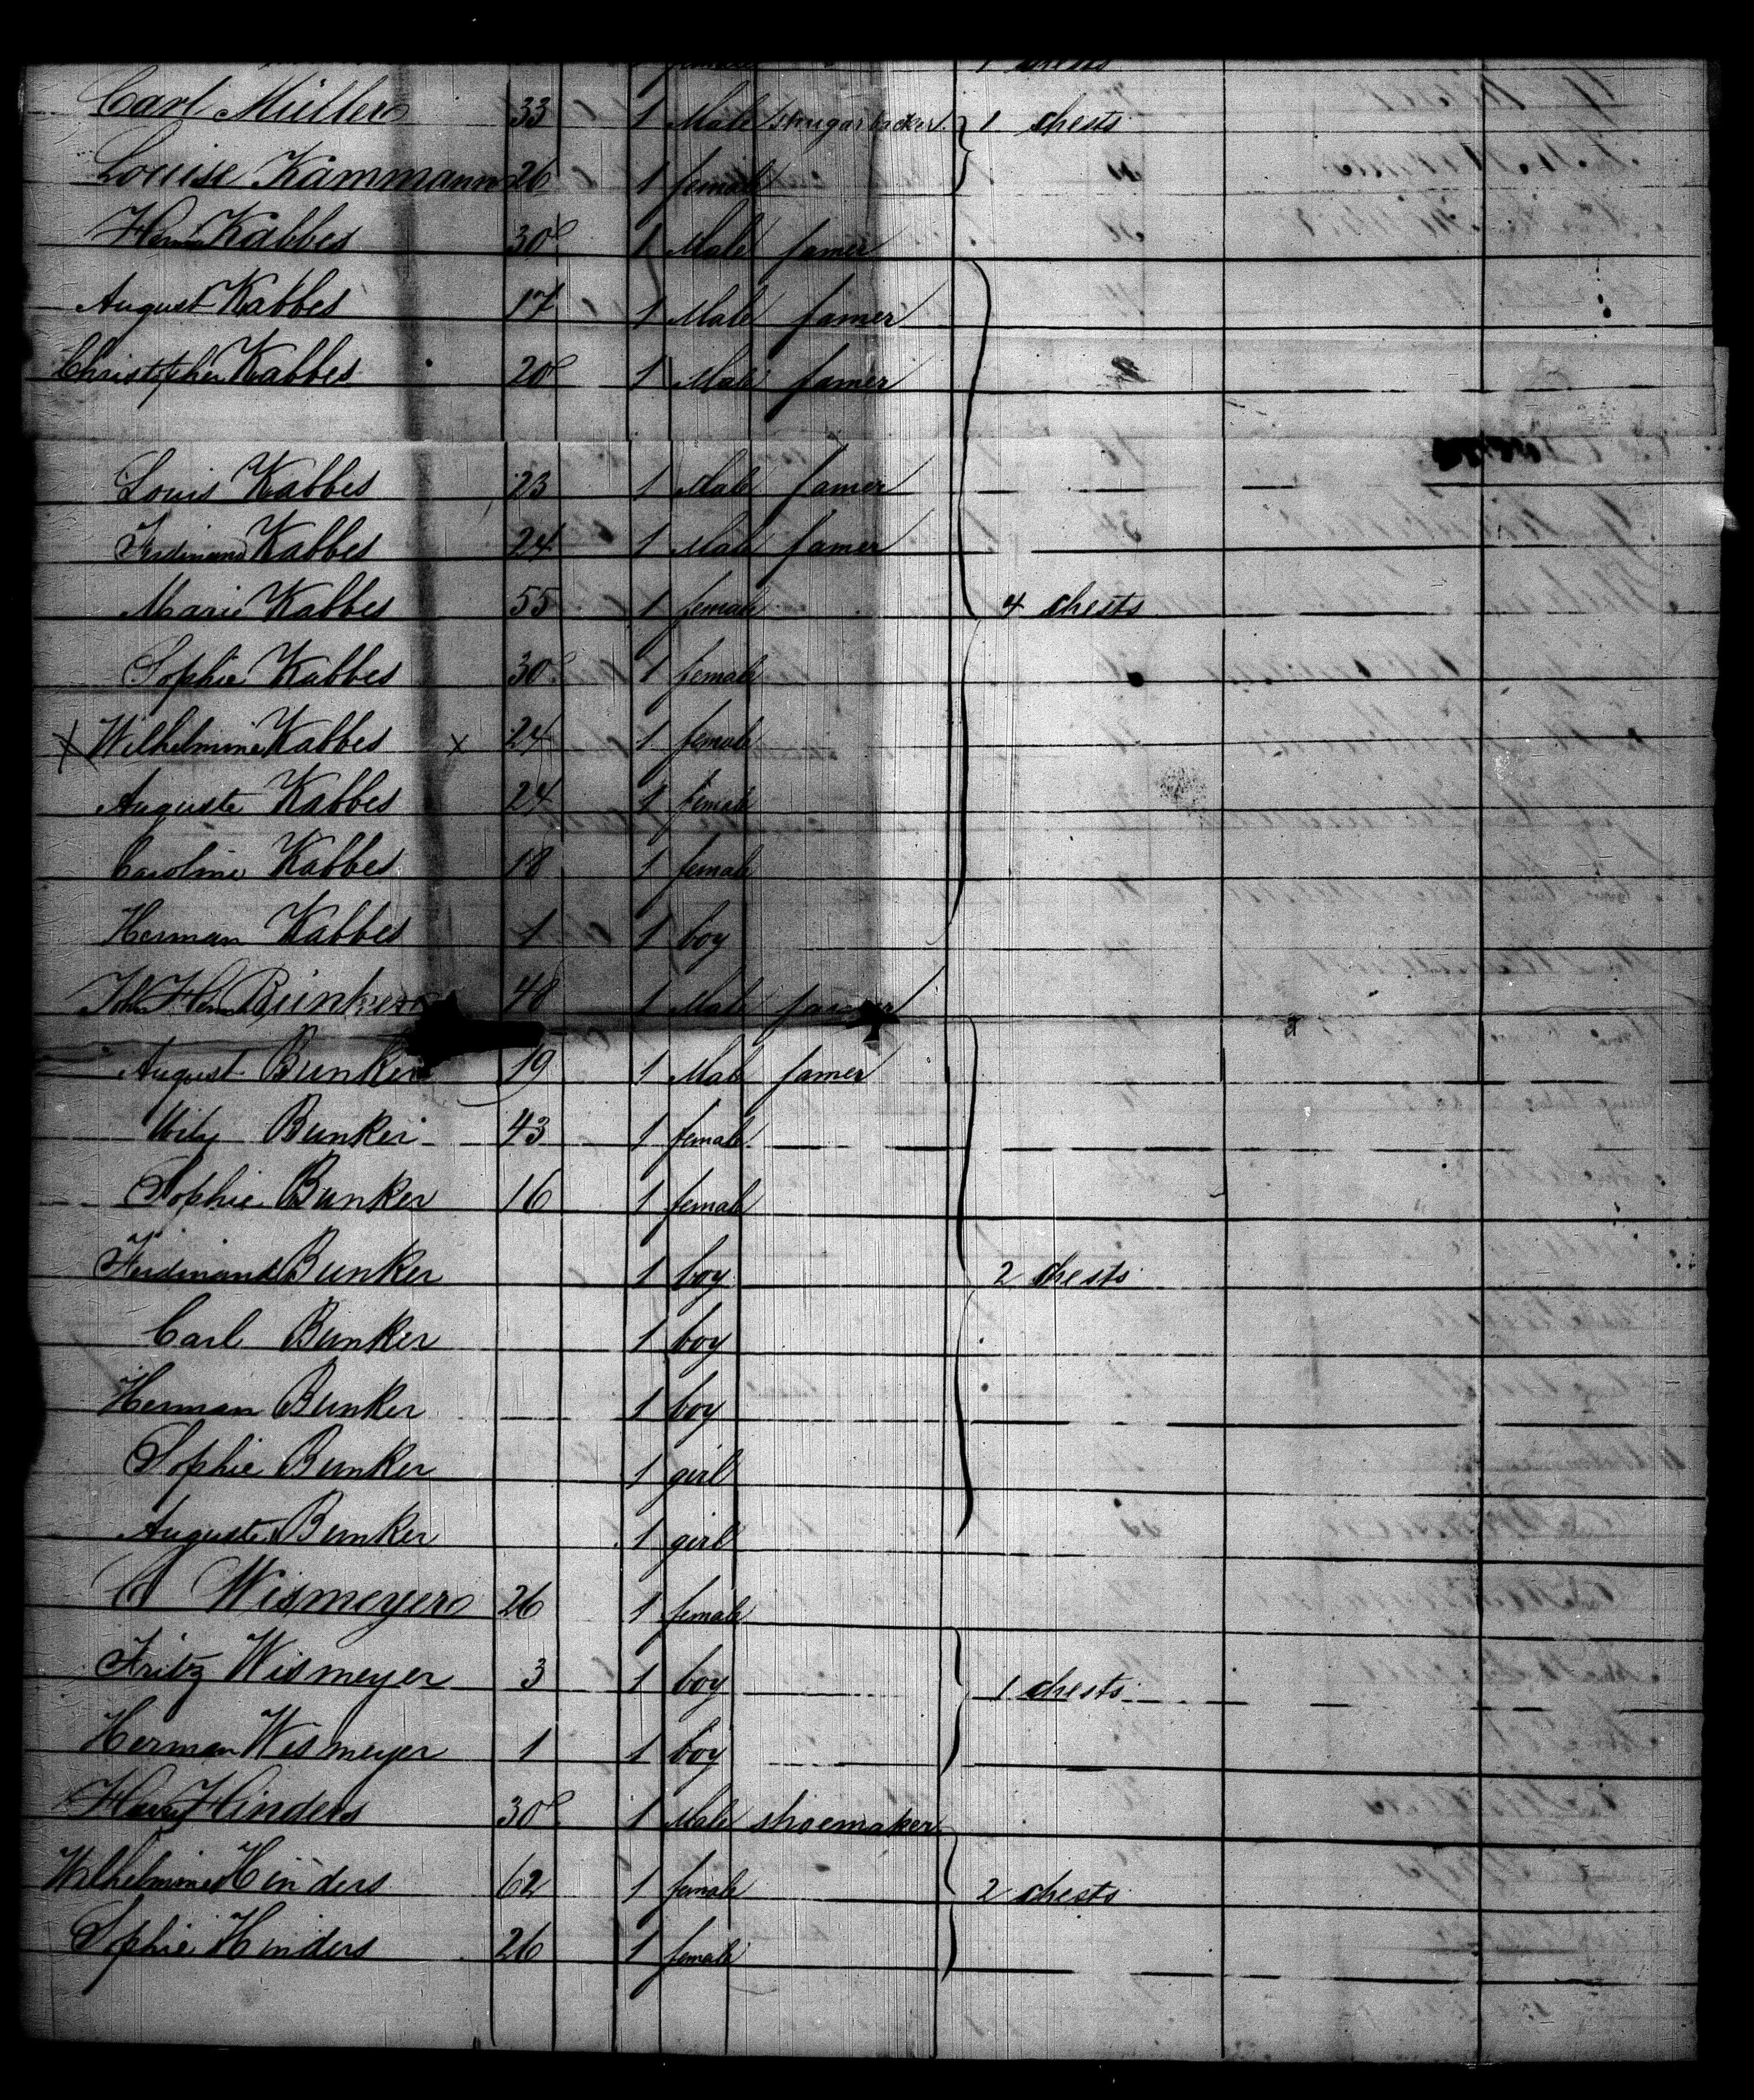 1 chests
Carl Müller 33 1 Male shugarbacker 1 chests
Louise Kammann 26 1 female
Kabbes 30 1 Male famer
August Kabbes 17 1 Male famer
Christopher Kabbes 20 1 Male famer
Louis Kabbes 23 1 Male famer
Ferdinand Kabbes 24 1 Male famer
Marie Kabbes 55 1 female 4 chests
Sophie Kabbes 30 1 female
X Wilhelmine Kabbes x 24 1 female
Auguste Kabbes 24 1 female
Caroline Kabbes 18 1 female
Herman Kabbes 1 1 boy
Bünker 48 1 Male farmer
August Bunker 19 1 Male famer
Bunker 43 1 female
Sophie Bunker 16 1 female
Ferdinand Bunker 1 boy 2 chests
Carl Bunker 1 boy
Herman Bunker 1 boy
Sophie Bunker 1 girl
Auguste Bunker 1 girl
C Wismeyer 26 1 female
Fritz Wismeyer 3 1 boy 1 chests
Herman Wismeyer 1 1 boy
Hinders 30 1 Male shoemaker
Wilhelmine Hinders 62 1 female 2 chests
Sophie Hinders 26 1 female